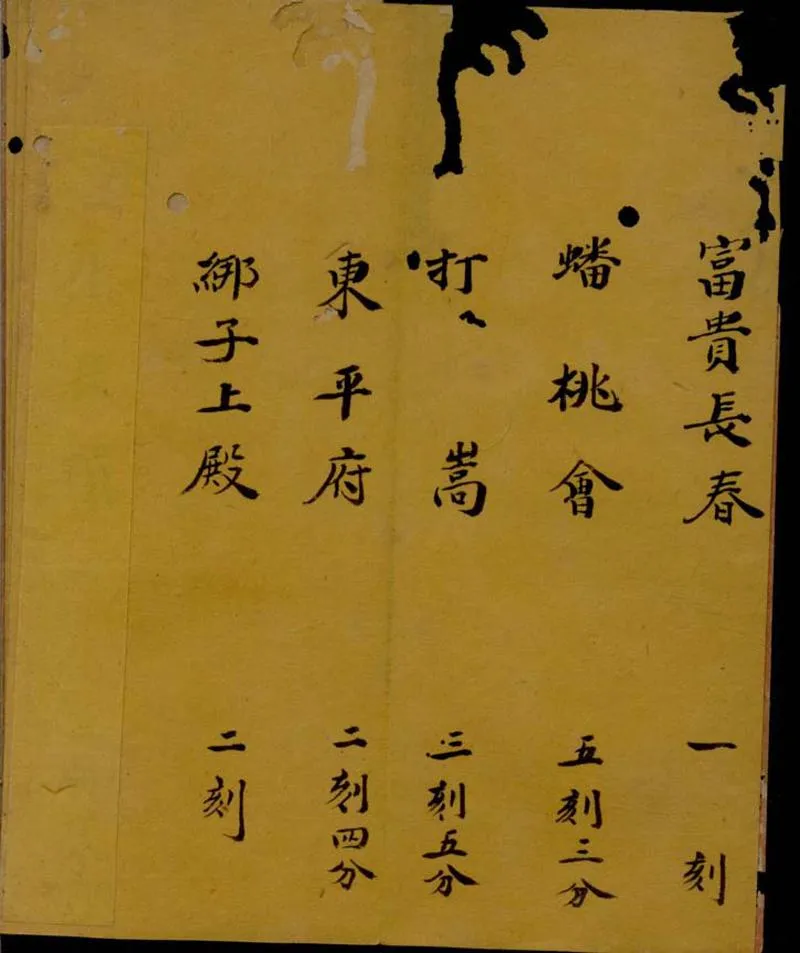 富貴長春 一刻
蟠桃會 五刻三分
打嵩 三刻五分
東平府 二刻四分
綁子上殿 二刻